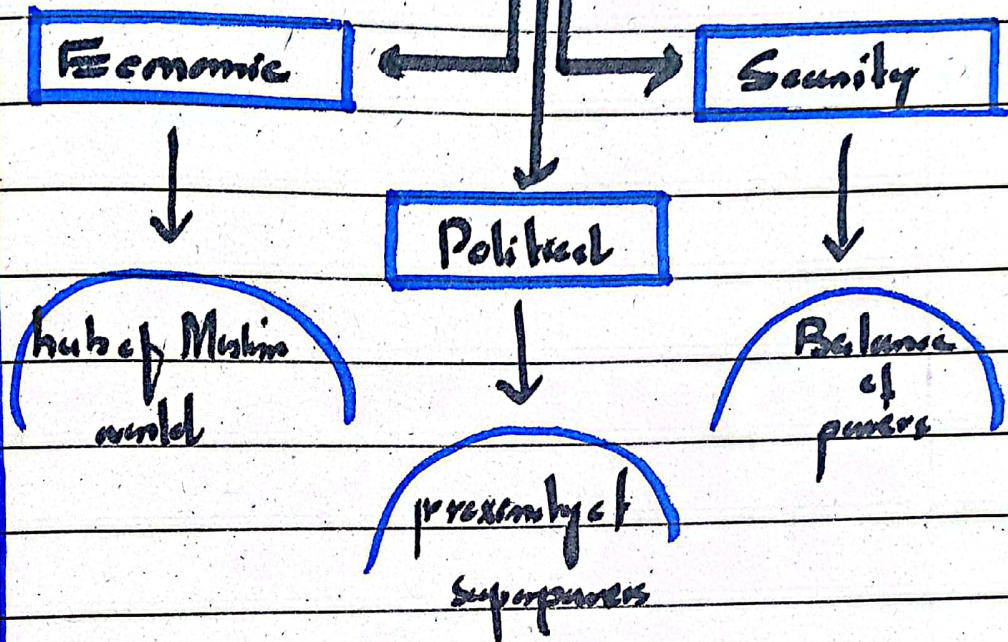 Economic
Security
Political
hub of Muslim
world
Balance
of
powers
proximity of
superpowers